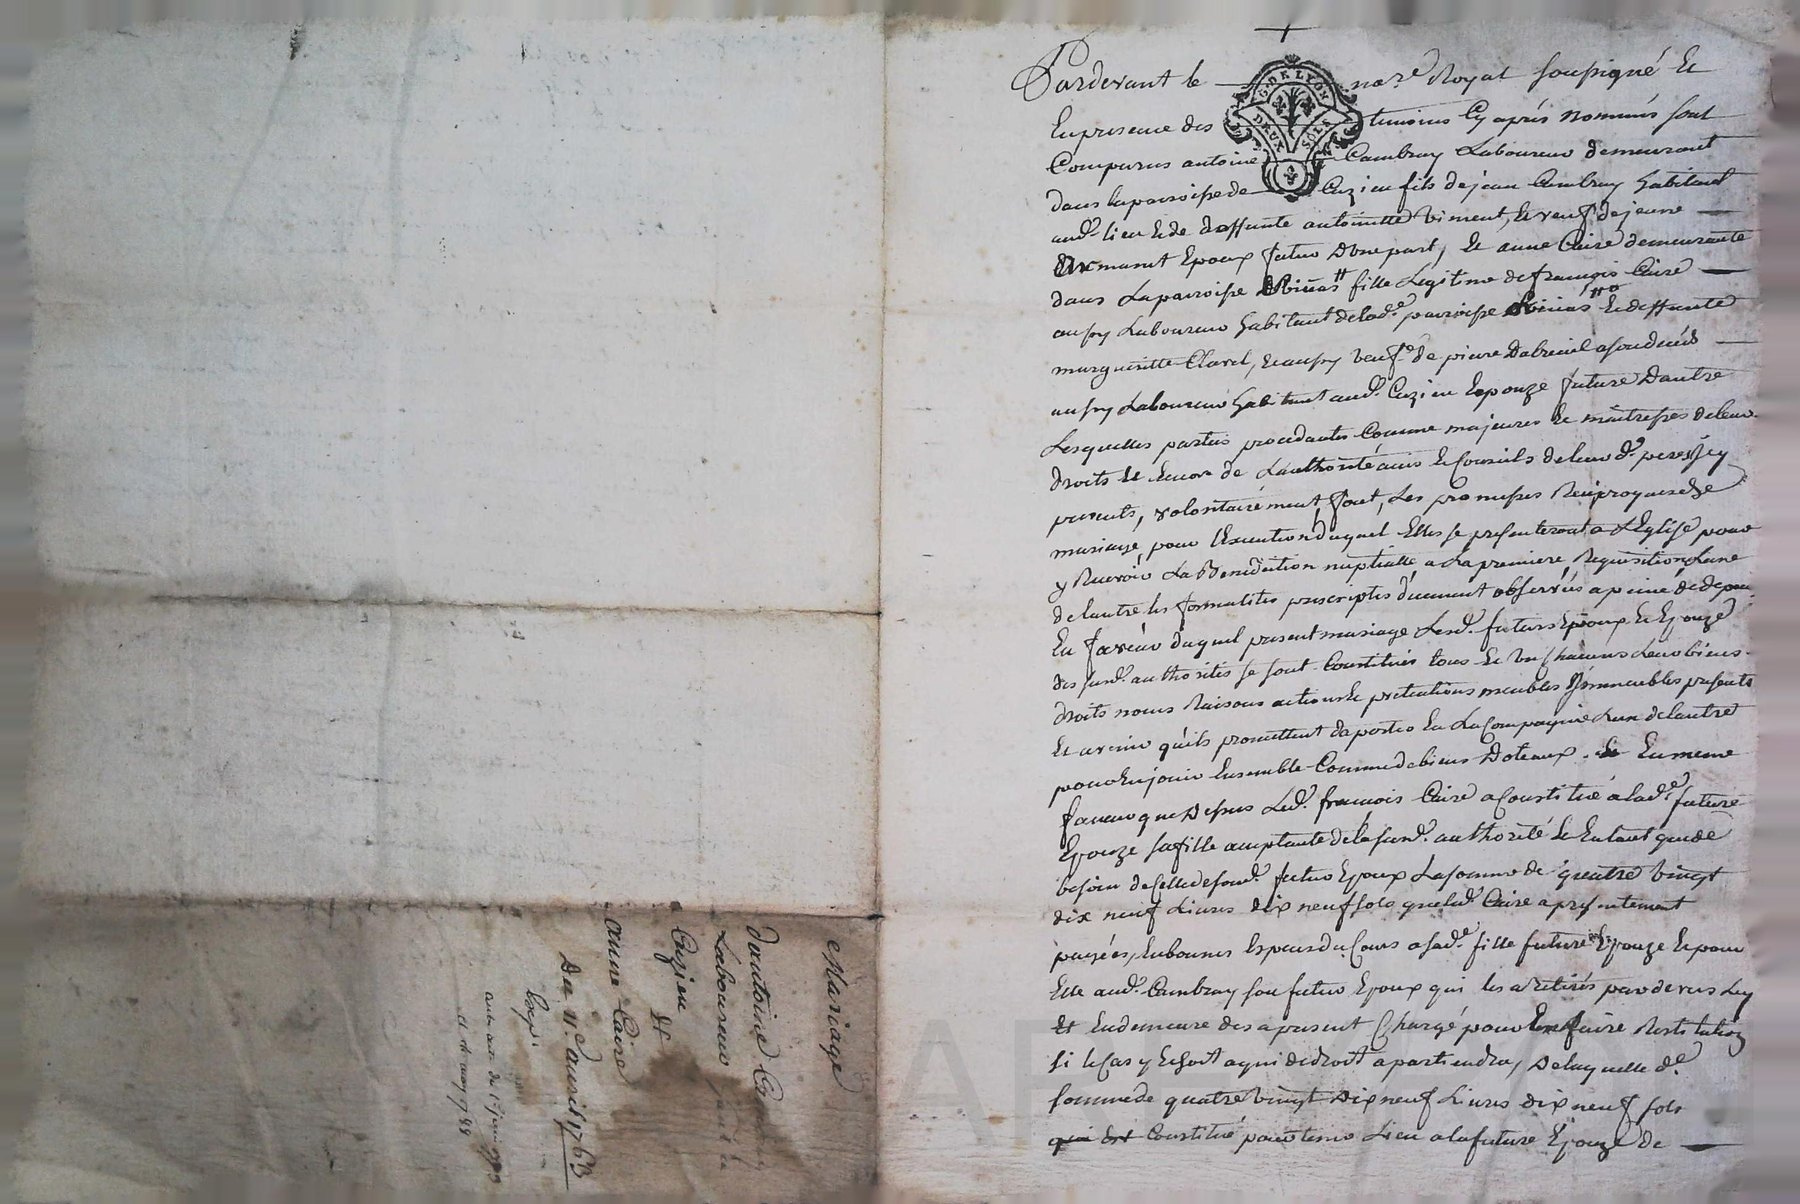 Pardevant le no.re Royal soussigné Et
En presence des temoins Cy aprés nommés sont
Comparus antoine Cambray Laboureur demeurant
dans la paroisse de Cuzieu fils de jean Cambray habitant
aud. lieu & de deffunte antoinette Viment, & veuf de jeanne
Epoux futur D'une part, Et anne Caire demeurante
dans La paroisse fille Legitime de francois Caire
aussy Laboureur habitant de lad.e paroisse & deffunte
margueritte Clavel, & aussy veufe de pierre
aussy Laboureur habitant aud. Cuzieu Epouze future D'autre
Lesquelles parties procedantes Comme majeures & maitresses de leur
droits Et Encor de L'authorité avis & Conseils de leur d. peres jcy
presents, volontairement, font, Les promesses Reciproques de
mariage, pour l'Execution duquel Elles se presenteront a L'Eglise pour
y Recevoir La Benediction nuptialle a La premiere Requisition L'une
de L'autre les formalités prescriptes duement observées a peine de depens
En faveur duquel present mariage Lesd. futurs Epoux & Epouze
des susd. authorités se sont Constitués tous & Un chacuns Leur biens
droits noms Raisons actions & pretentions meubles & jmmeubles presents
Et avenir qu'ils promettent d'aporter En La Compagnie L'un de L'autre
pour En jouir Ensemble Comme de biens Doteaux. En meme
faveur que Dessus Led. francois Caire a Constitué a lad.e future
Epouze sa fille acceptante de la susd. authorité & Entant que de
besoin de Celle de sond. futur Epoux La somme de quatre vingt
dix neuf Livres dix neuf sols que led. Caire a presentement
payées, En bonnes Especes du Cours a sad.e fille future Epouze & pour
Elle aud. Cambray son futur Epoux qui les a Retirés par devers Luy
Et En demeure des a present Chargé pour En faire Restitution
si le Cas y Echoit a qui de droit apartiendra, De laquelle d.e
somme de quatre vingt Dix neuf Livres dix neuf sols
Constitué pour tenir Lieu a la future Epouze de
Mariage
d'antoine
Laboureur
Cuzieu
Et
anne Caire
Du 11.e avril 1763
G. DE LYON
DEUX SOLS